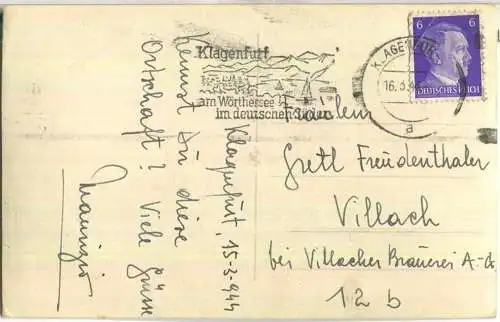 Klagenfurt, 15-3-944
Kennst Du diese
Ortschaft? Viele Grüsse
Maurizio
Klagenfurt
am Wörthersee
im deutschen Süden
KLAGENFURT
16.3.
a
6 6
DEUTSCHES REICH
Fräulein
Gretl Freudenthaler
Villach
bei Villacher Brauerei A-G
12 b